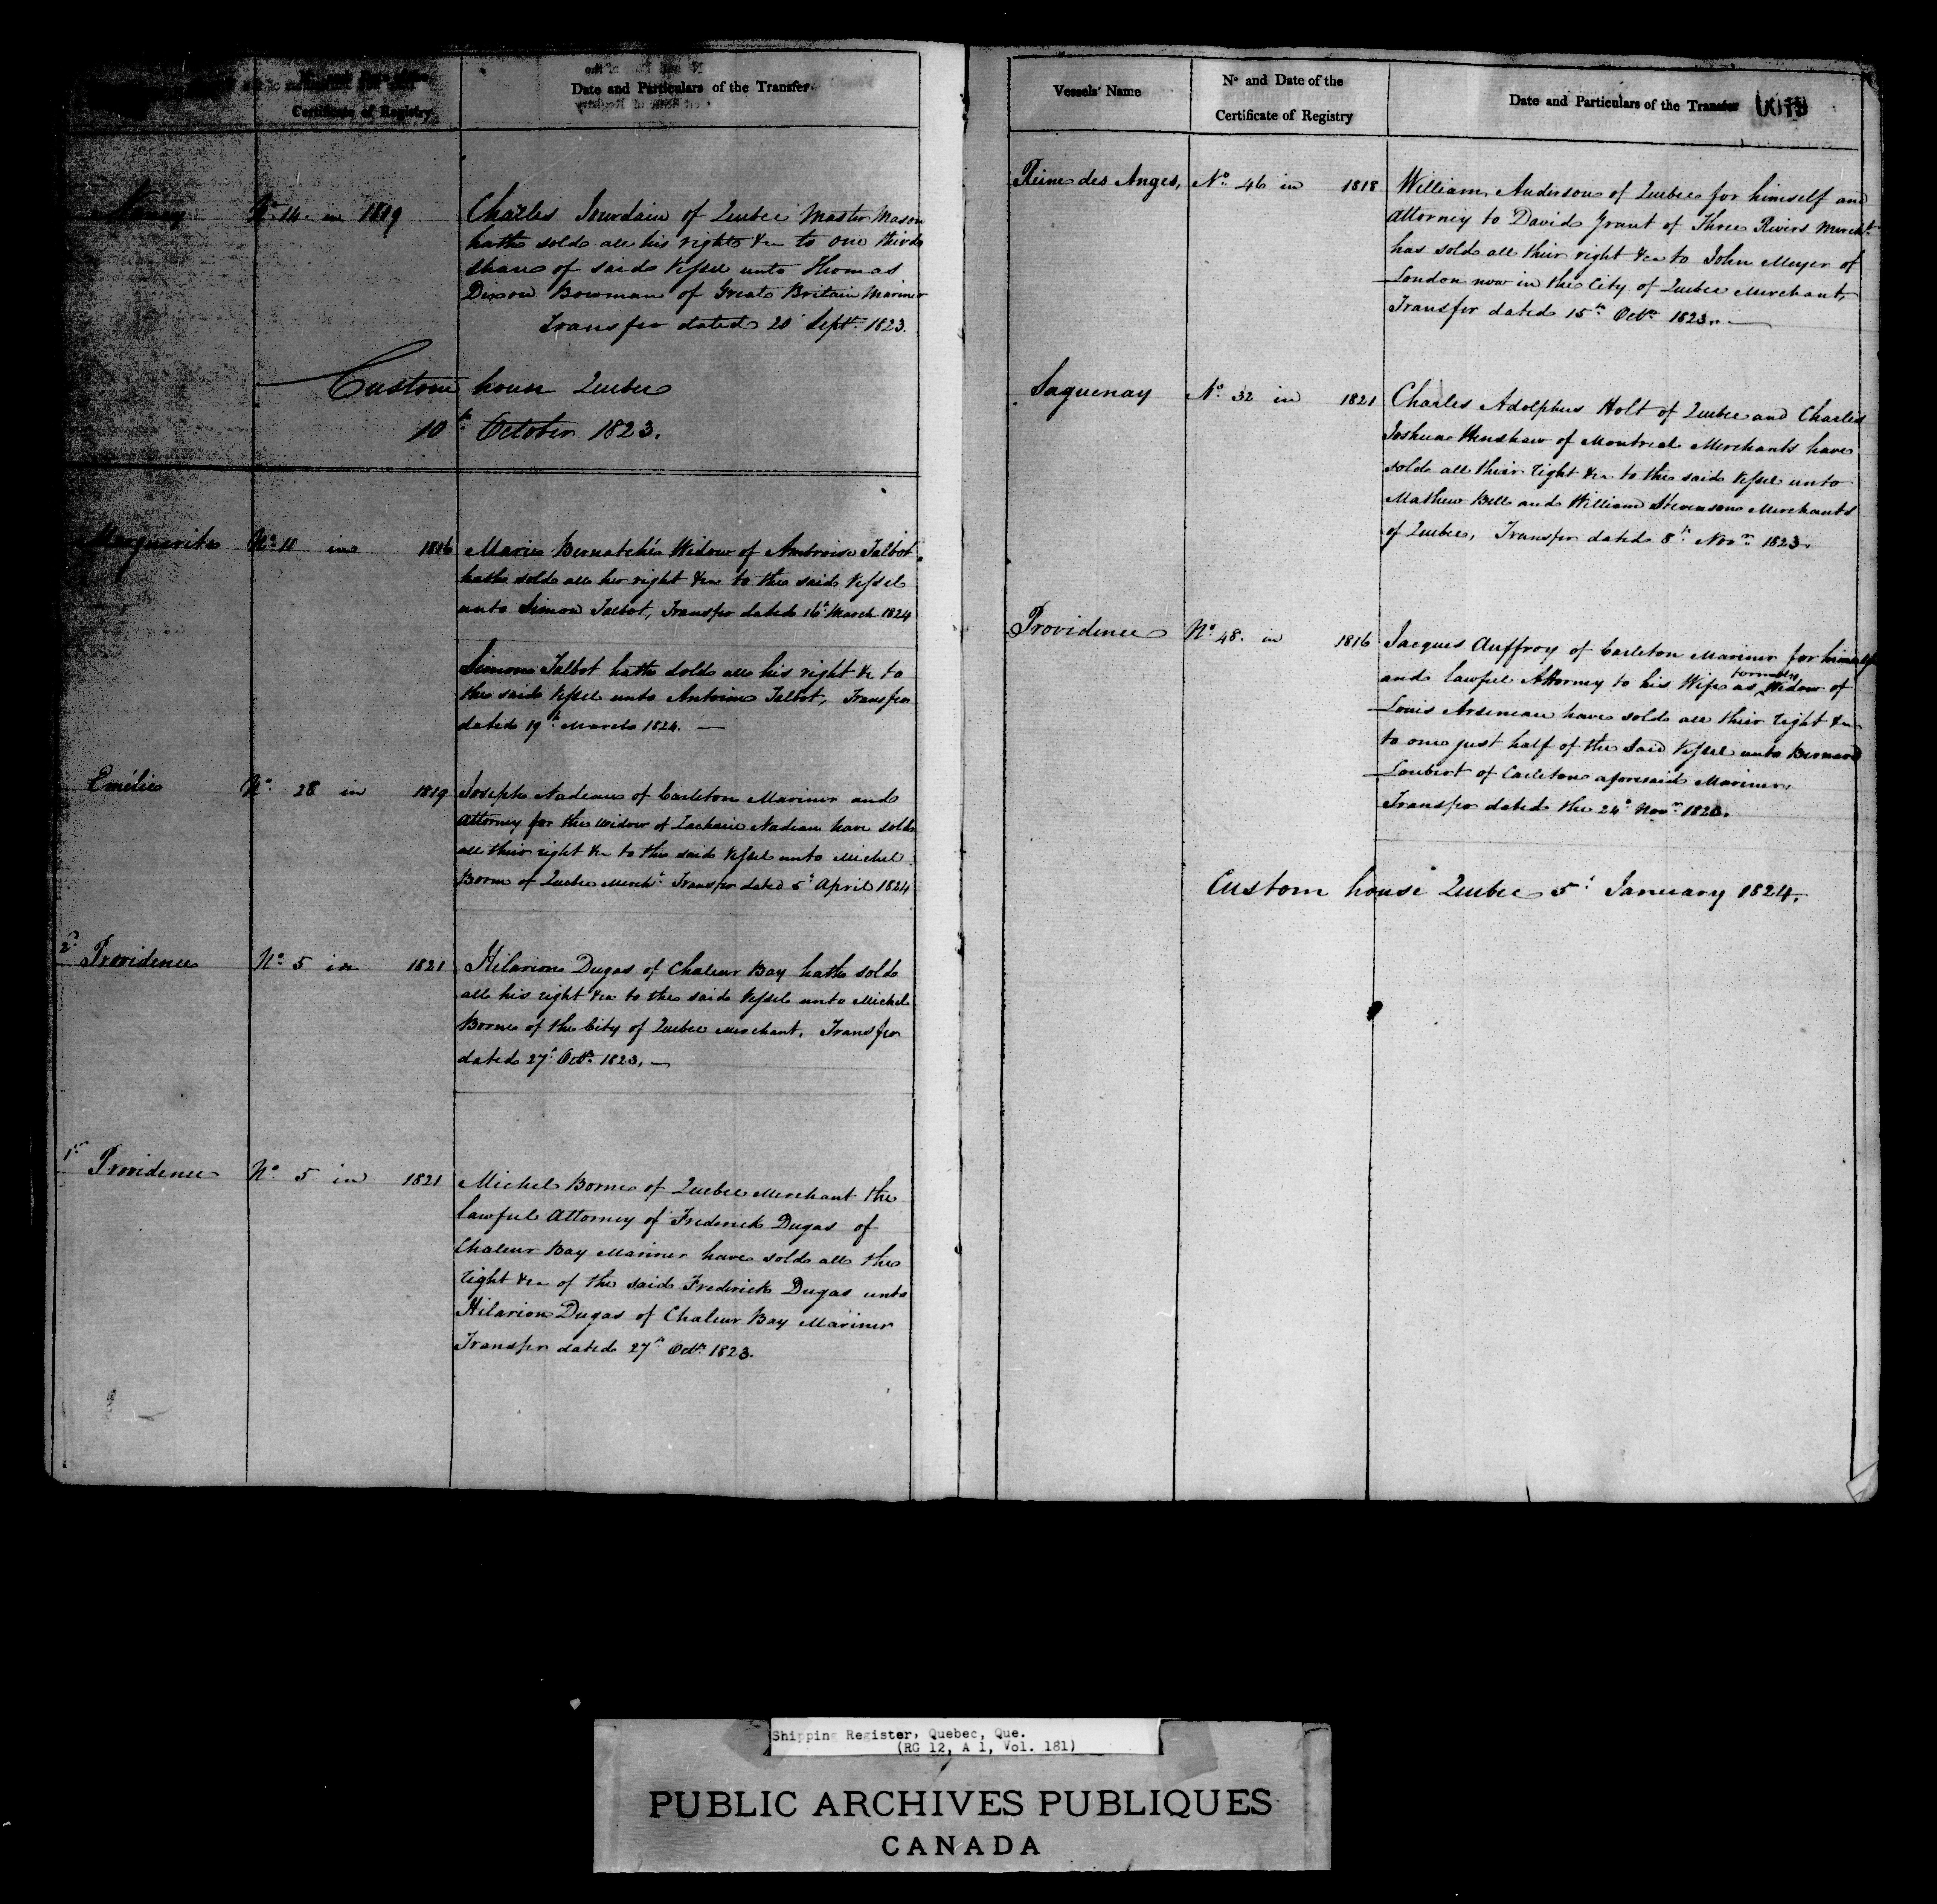 Certificate of Registry
Date and Particulars of the Transfer.
Nancy Nº 14 in 1819 Charles Jourdain of Quebec Master Mason
hath sold all his right &ca to one third
share of said Vessel unto Thomas
Dixon Bowman of Great Britain Mariner
Transfer dated 20 Septr. 1823.
Custom house Quebec
10th October 1823.
Marguerite Nº 11 in 1816 Marie Bernatchés Widow of Ambroise Talbot
hath sold all her right &ca to the said Vessel
unto Simon Talbot, Transfer dated 16th March 1824
Simon Talbot hath sold all his right &c to
the said Vessel unto Antoine Talbot, Transfer
dated 19th March 1824. —
Emélie Nº 28 in 1819 Joseph Nadeau of Carleton Mariner and
Attorney for the widow of Zacharie Nadeau have sold
all their right &ca to the said Vessel unto Michel
Borne of Quebec Mercht. Transfer dated 5th April 1824
2d Providence Nº 5 in 1821 Hilarion Dugas of Chaleur Bay hath sold
all his right &ca to the said Vessel unto Michel
Borne of the City of Quebec Merchant. Transfer
dated 27th Octr. 1823. —
1st Providence Nº 5 in 1821 Michel Borne of Quebec Merchant the
lawful Attorney of Frederick Dugas of
Chaleur Bay Mariner have sold all the
right &ca of the said Frederick Dugas unto
Hilarion Dugas of Chaleur Bay Mariner
Transfer dated 27th Octr. 1823.
Vessels' Name
Nº and Date of the
Certificate of Registry
Date and Particulars of the Transfer
Reine des Anges, Nº 46 in 1818 William Anderson of Quebec for himself and
Attorney to David Grant of Three Rivers Mercht.
has sold all their right &ca to John Meyer of
London now in the City of Quebec Merchant,
Transfer dated 15th Octr. 1823. —
Saguenay Nº 32 in 1821 Charles Adolphus Holt of Quebec and Charles
Joshua Henshaw of Montreal Merchants have
sold all their right &ca to the said Vessel unto
Mathew Bell and William Stevenson Merchants
of Quebec, Transfer dated 8th Novr. 1823.
Providence Nº 48. in 1816 Jacques Auffroy of Carleton Mariner for himself
and lawful Attorney to his Wife as formerly Widow of
Louis Arseneau have sold all their right &ca
to one just half of the said Vessel unto Bernard
Loubert of Carleton aforesaid Mariner,
Transfer dated the 24th Novr. 1823.
Custom house Quebec 5th January 1824.
Shipping Register, Quebec, Que.
(RG 12, A 1, Vol. 181)
PUBLIC ARCHIVES PUBLIQUES
CANADA